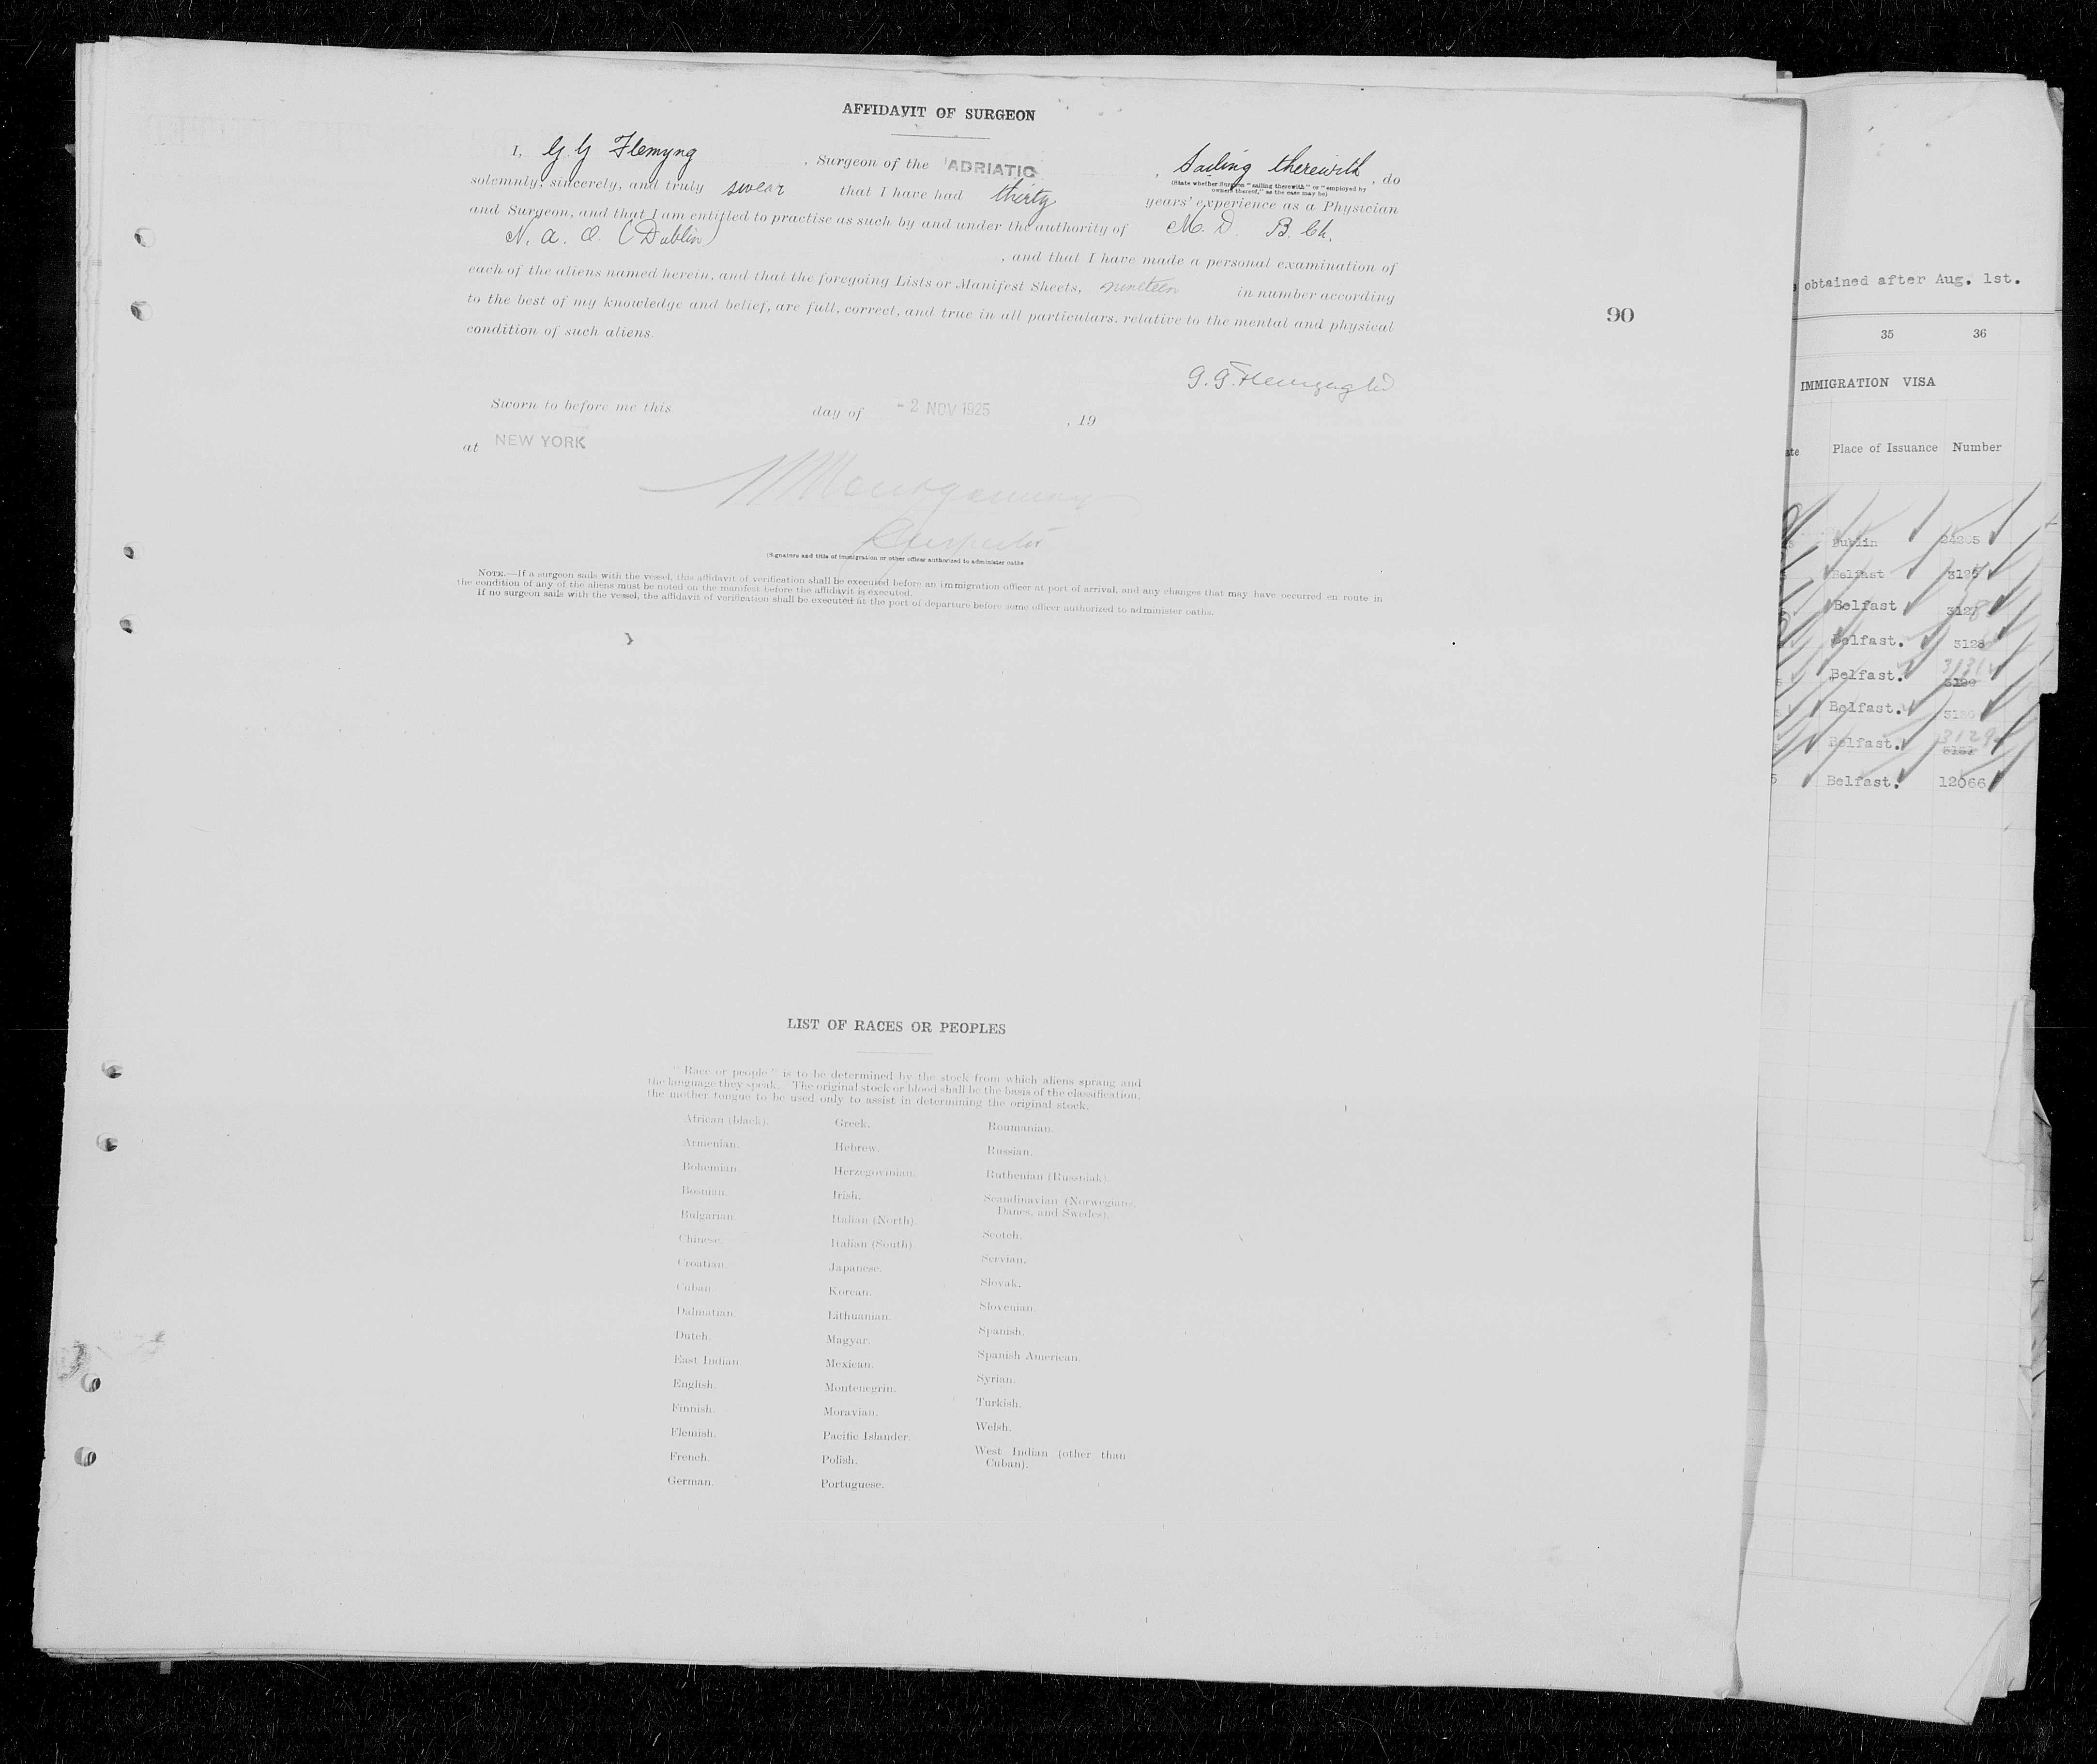 AFFIDAVIT OF SURGEON
I, G. G Flemyng, Surgeon of the ADRIATIC, Sailing therewith, do
(State whether Surgeon "sailing therewith" or "employed by owners thereof," as the case may be)
solemnly, sincerely, and truly swear that I have had thirty years' experience as a Physician
and Surgeon, and that I am entitled to practise as such by and under the authority of M. D. B. Ch.
(Dublin)
, and that I have made a personal examination of
each of the aliens named herein, and that the foregoing Lists or Manifest Sheets, nineteen in number according
to the best of my knowledge and belief, are full, correct, and true in all particulars, relative to the mental and physical
condition of such aliens.
90
Sworn to before me this day of - 2 NOV 1925, 19
at NEW YORK
(Signature and title of immigration or other officer authorized to administer oaths
NOTE.—If a surgeon sails with the vessel, this affidavit of verification shall be executed before an immigration officer at port of arrival, and any changes that may have occurred en route in
the condition of any of the aliens must be noted on the manifest before the affidavit is executed.
If no surgeon sails with the vessel, the affidavit of verification shall be executed at the port of departure before some officer authorized to administer oaths.
LIST OF RACES OR PEOPLES
"Race or people" is to be determined by the stock from which aliens sprang and
the language they speak. The original stock or blood shall be the basis of the classification,
the mother tongue to be used only to assist in determining the original stock.
African (black).
Armenian.
Bohemian.
Bosnian.
Bulgarian.
Chinese.
Croatian.
Cuban.
Dalmatian.
Dutch.
East Indian.
English.
Finnish.
Flemish.
French.
German.
Greek.
Hebrew.
Herzegovinian.
Irish.
Italian (North).
Italian (South)
Japanese.
Korean.
Lithuanian.
Magyar.
Mexican.
Montenegrin.
Moravian.
Pacific Islander.
Polish.
Portuguese.
Roumanian.
Russian.
Ruthenian (Russniak).
Scandinavian (Norwegians,
Danes, and Swedes).
Scotch.
Servian.
Slovak.
Slovenian.
Spanish.
Spanish American.
Syrian.
Turkish.
Welsh.
West Indian (other than
Cuban).
obtained after Aug. 1st.
35 36
IMMIGRATION VISA
Place of Issuance Number
Dublin
Belfast
Belfast
Belfast.
Belfast. 3131
Belfast.
Belfast. 3129
Belfast. 12066